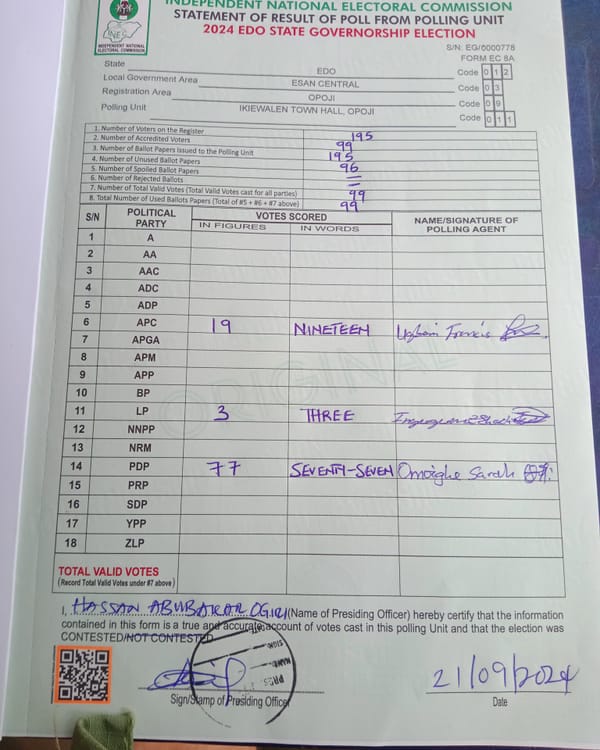 INEC
INDEPENDENT NATIONAL ELECTORAL COMMISSION
INDEPENDENT NATIONAL ELECTORAL COMMISSION
STATEMENT OF RESULT OF POLL FROM POLLING UNIT
2024 EDO STATE GOVERNORSHIP ELECTION
S/N: EG/0000778
FORM EC 8A
State EDO Code 0 1 2
Local Government Area ESAN CENTRAL Code 0 3
Registration Area OPOJI Code 0 9
Polling Unit IKIEWALEN TOWN HALL, OPOJI Code 0 1 1
1. Number of Voters on the Register 195
2. Number of Accredited Voters 99
3. Number of Ballot Papers Issued to the Polling Unit 195
4. Number of Unused Ballot Papers 96
5. Number of Spoiled Ballot Papers —
6. Number of Rejected Ballots —
7. Number of Total Valid Votes (Total Valid Votes cast for all parties) 99
8. Total Number of Used Ballots Papers (Total of #5 + #6 + #7 above) 99
S/N POLITICAL PARTY VOTES SCORED NAME/SIGNATURE OF POLLING AGENT
IN FIGURES IN WORDS
1 A
2 AA
3 AAC
4 ADC
5 ADP
6 APC 19 NINETEEN Francis
7 APGA
8 APM
9 APP
10 BP
11 LP 3 THREE
12 NNPP
13 NRM
14 PDP 77 SEVENTY-SEVEN Omoighe Sarah
15 PRP
16 SDP
17 YPP
18 ZLP
ORIGINAL
TOTAL VALID VOTES
(Record Total Valid Votes under #7 above)
I, HASSAN ABUBAKAR OGIRI (Name of Presiding Officer) hereby certify that the information
contained in this form is a true and accurate account of votes cast in this polling Unit and that the election was
CONTESTED/NOT CONTESTED
Sign/Stamp of Presiding Officer
21/09/2024
Date